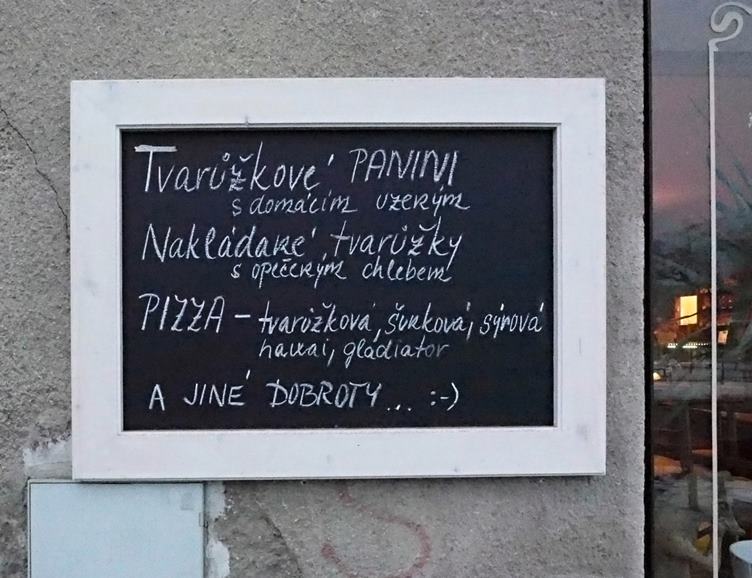 Tvarůžkové PANINI
s domácím uzeným
Nakládané tvarůžky
s opečeným chlebem
PIZZA - tvarůžková, šunková, sýrová
hawai, gladiátor
A JINÉ DOBROTY... :-)